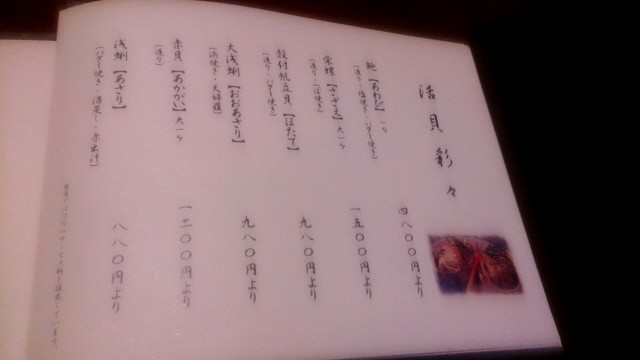 活貝彩々
鮑【あわび】 一ヶ
(造り・塩焼き・バター焼き)
四八〇〇円より
栄螺【さざえ】 大一ヶ
(造り・つぼ焼き)
一五〇〇円より
殻付帆立貝【ほたて】
(造り・バター焼き)
九八〇円より
大浅蜊【おおあさり】
(浜焼き・天婦羅)
九八〇円より
赤貝【あかがい】 大一ヶ
(造り)
一二〇〇円より
浅蜊【あさり】
(バター焼き・酒蒸し・赤出汁)
八八〇円より
サービス料を頂戴しています。